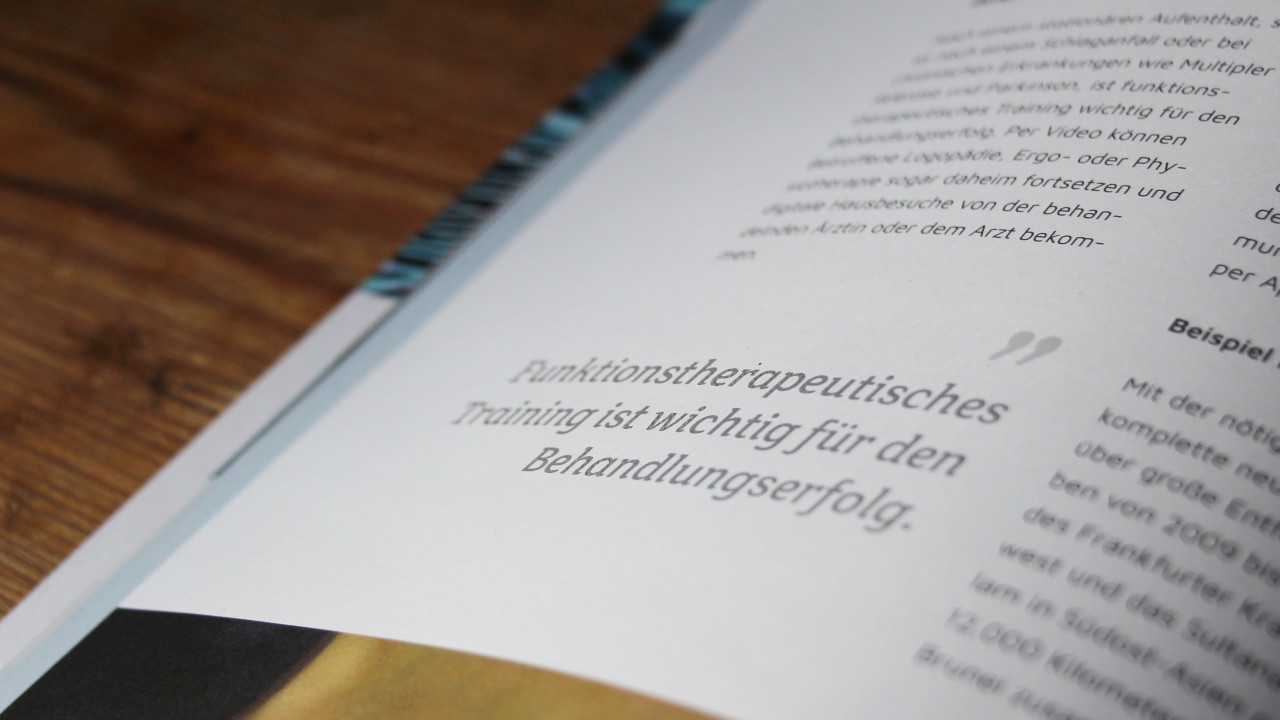 nach einem stationären Aufenthalt, s
nach einem Schlaganfall oder bei
chronischen Erkrankungen wie Multipler
Sklerose und Parkinson, ist funktions-
therapeutisches Training wichtig für den
Behandlungserfolg. Per Video können
Betroffene Logopädie, Ergo- oder Phy-
siotherapie sogar daheim fortsetzen und
digitale Hausbesuche von der behan-
delnden Ärztin oder dem Arzt bekom-
men.
”
Funktionstherapeutisches
Training ist wichtig für den
Behandlungserfolg.
de
mun
per A
Beispiel
Mit der nötig
komplette neu
über große Entf
ben von 2009 bis
des Frankfurter Kra
west und das Sultan
lam in Südost-Asien
12.000 Kilomete
Brunei zusa